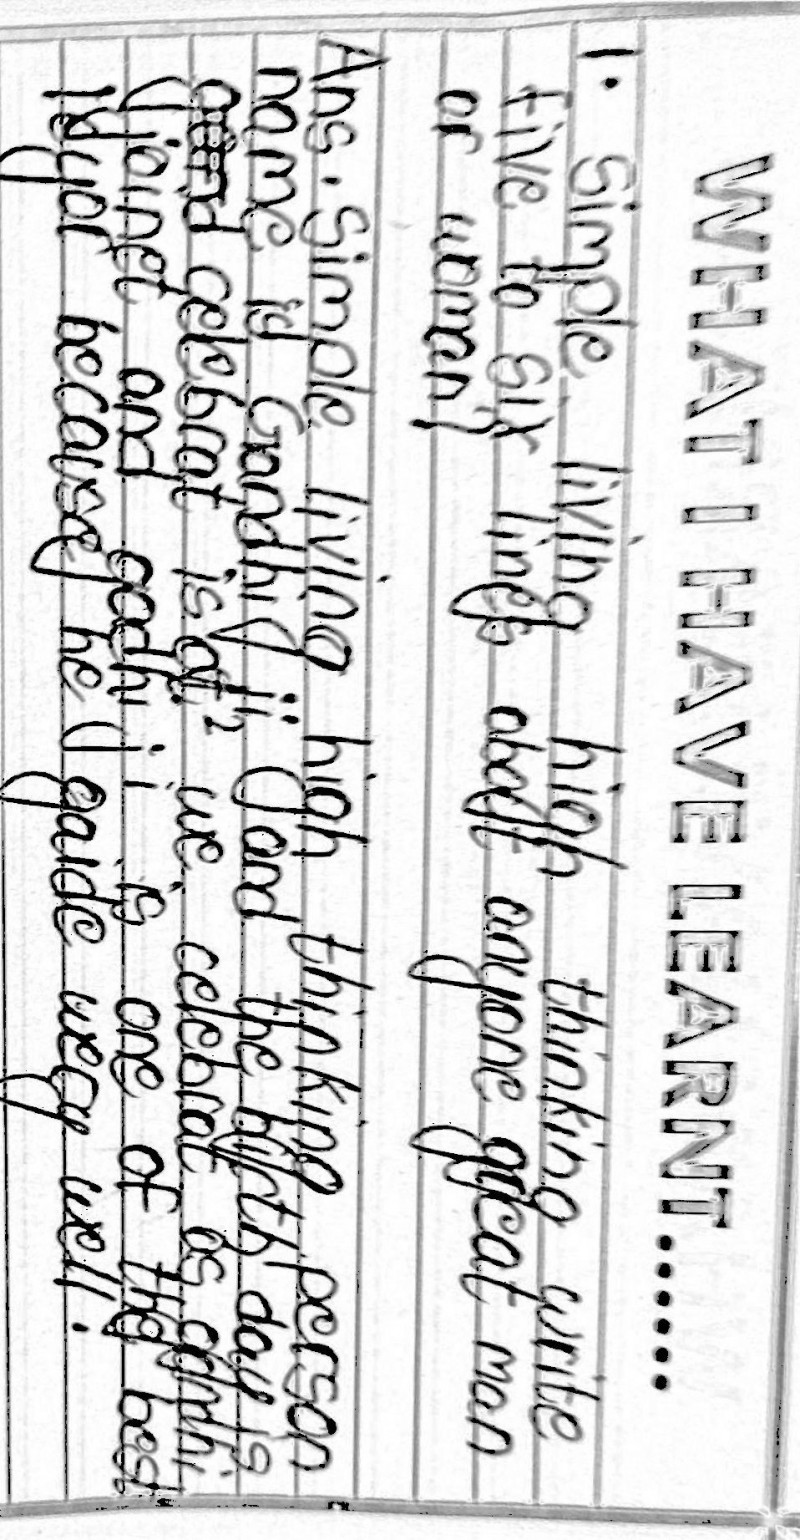 WHAT I HAVE LEARNT.......
1. Simple living high thinking write
five to six lines about anyone great man
or woman!
Ans. Simple living high thinking person
name is Gandhi ji and the birth day is
and celebrat is at 2 we celebrat as gandhi
jainet and gadhi ji is one of the best
lyor because he gaide wery well.